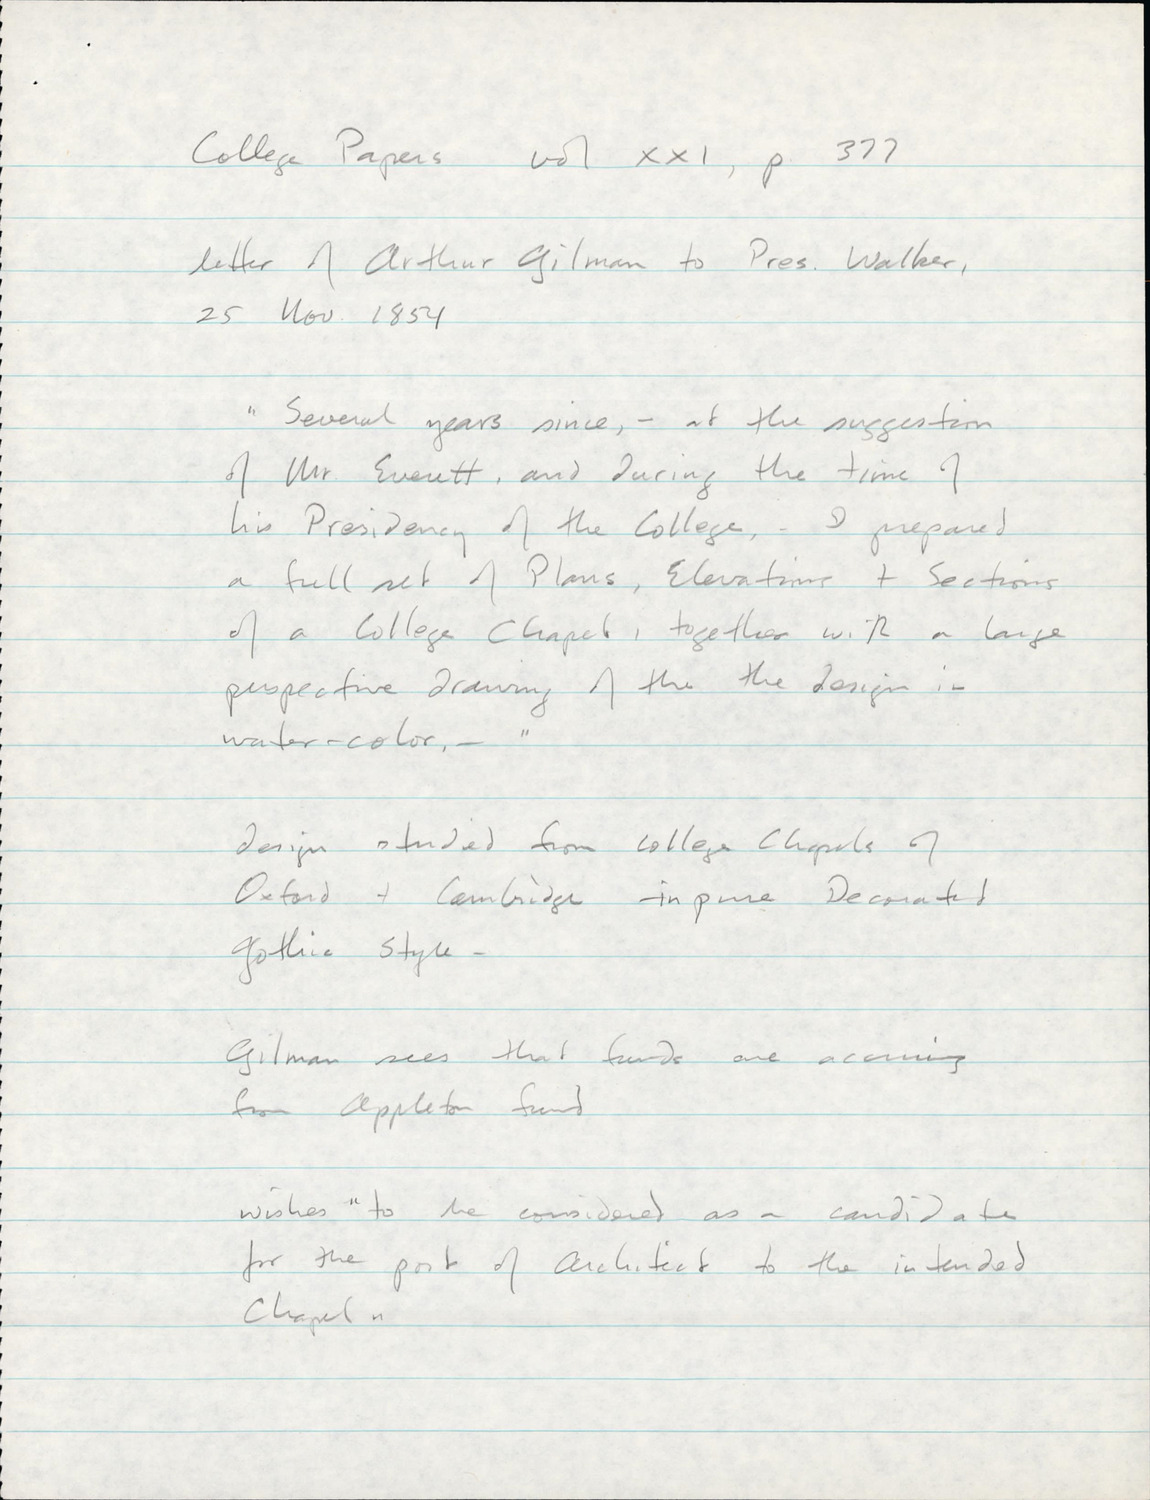 College Papers vol XXI, p. 377
letter of Arthur Gilman to Pres. Walker,
25 Nov. 1854
" Several years since, - at the suggestion
of Mr. Everett, and during the time of
his Presidency of the College, - I prepared
a full set of Plans, Elevations + Sections
of a College Chapel, together with a large
perspective drawing of the the design in
water-color, - "
design studied from college Chapels of
Oxford + Cambridge - in pure Decorated
Gothic Style -
Gilman sees that funds are accruing
from Appleton fund
wishes "to be considered as a candidate
for the post of Architect to the intended
Chapel"